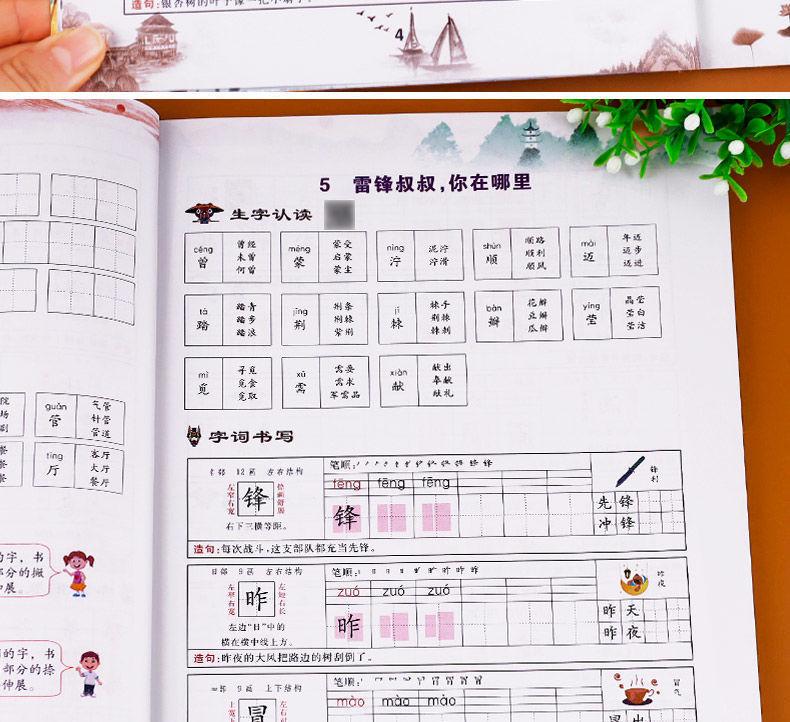 造句：银杏树的叶子像一把小扇子。
4
5 雷锋叔叔，你在哪里
生字认读
céng 曾 曾经 未曾 何曾
méng 蒙 蒙受 启蒙 蒙尘
nìng 泞 泥泞 泞滑
shùn 顺 顺路 顺利 顺风
mài 迈 年迈 迈步 迈进
tà 踏 踏青 踏步 踏浪
jīng 荆 荆条 荆棘 紫荆
jí 棘 棘手 荆棘 棘刺
bàn 瓣 花瓣 豆瓣 瓜瓣
yíng 莹 晶莹 莹白 莹洁
mì 觅 寻觅 觅食 觅取
xū 需 需要 需求 军需品
xiàn 献 献出 奉献 献礼
院
场
剧
guǎn 管 气管 针管 管道
餐
餐
餐
tīng 厅 客厅 大厅 餐厅
字词书写
钅部 12画 左右结构
左窄右宽
锋
右下三横等距。
笔顺：
fēng fēng fēng
锋
锋利
先锋
冲锋
造句：每次战斗，这支部队都充当先锋。
日部 9画 左右结构
左窄右宽
昨
左短右长
左边“日”中的
横在横中线上方。
笔顺：
zuó zuó zuó
昨
昨夜
昨天
昨夜
造句：昨夜的大风把路边的树刮倒了。
的字，书
部分的撇
伸展。
的字，书
部分的捺
伸展。
9画 上下结构
冒
笔顺：
mào mào mào
冒
冒气
冒出